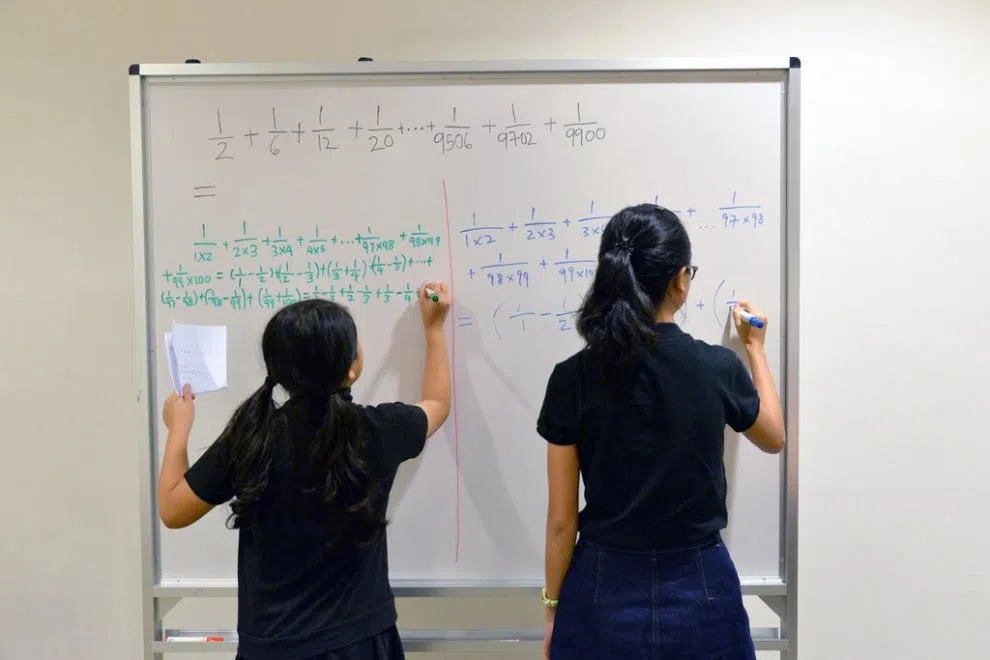 1/2 + 1/6 + 1/12 + 1/20 + ... + 1/9506 + 1/9702 + 1/9900
=
1/1×2 + 1/2×3 + 1/3×4 + 1/4×5 + ... + 1/97×98 + 1/98×99
+ 1/99×100 = (1/1 - 1/2) + (1/2 - 1/3) + (1/3 + 1/4) + (1/4 - 1/5) + ... +
(1/97 - 1/98) + (1/98 - 1/99) + (1/99 + 1/100) = 1/1 - 1/2 + 1/2 - 1/3 + 1/3 - 1/4 +
1/1×2 + 1/2×3 + 1/3× + ... 1/97×98
+ 1/98×99 + 1/99×100
= (1/1 - 1/2 ) + (1/